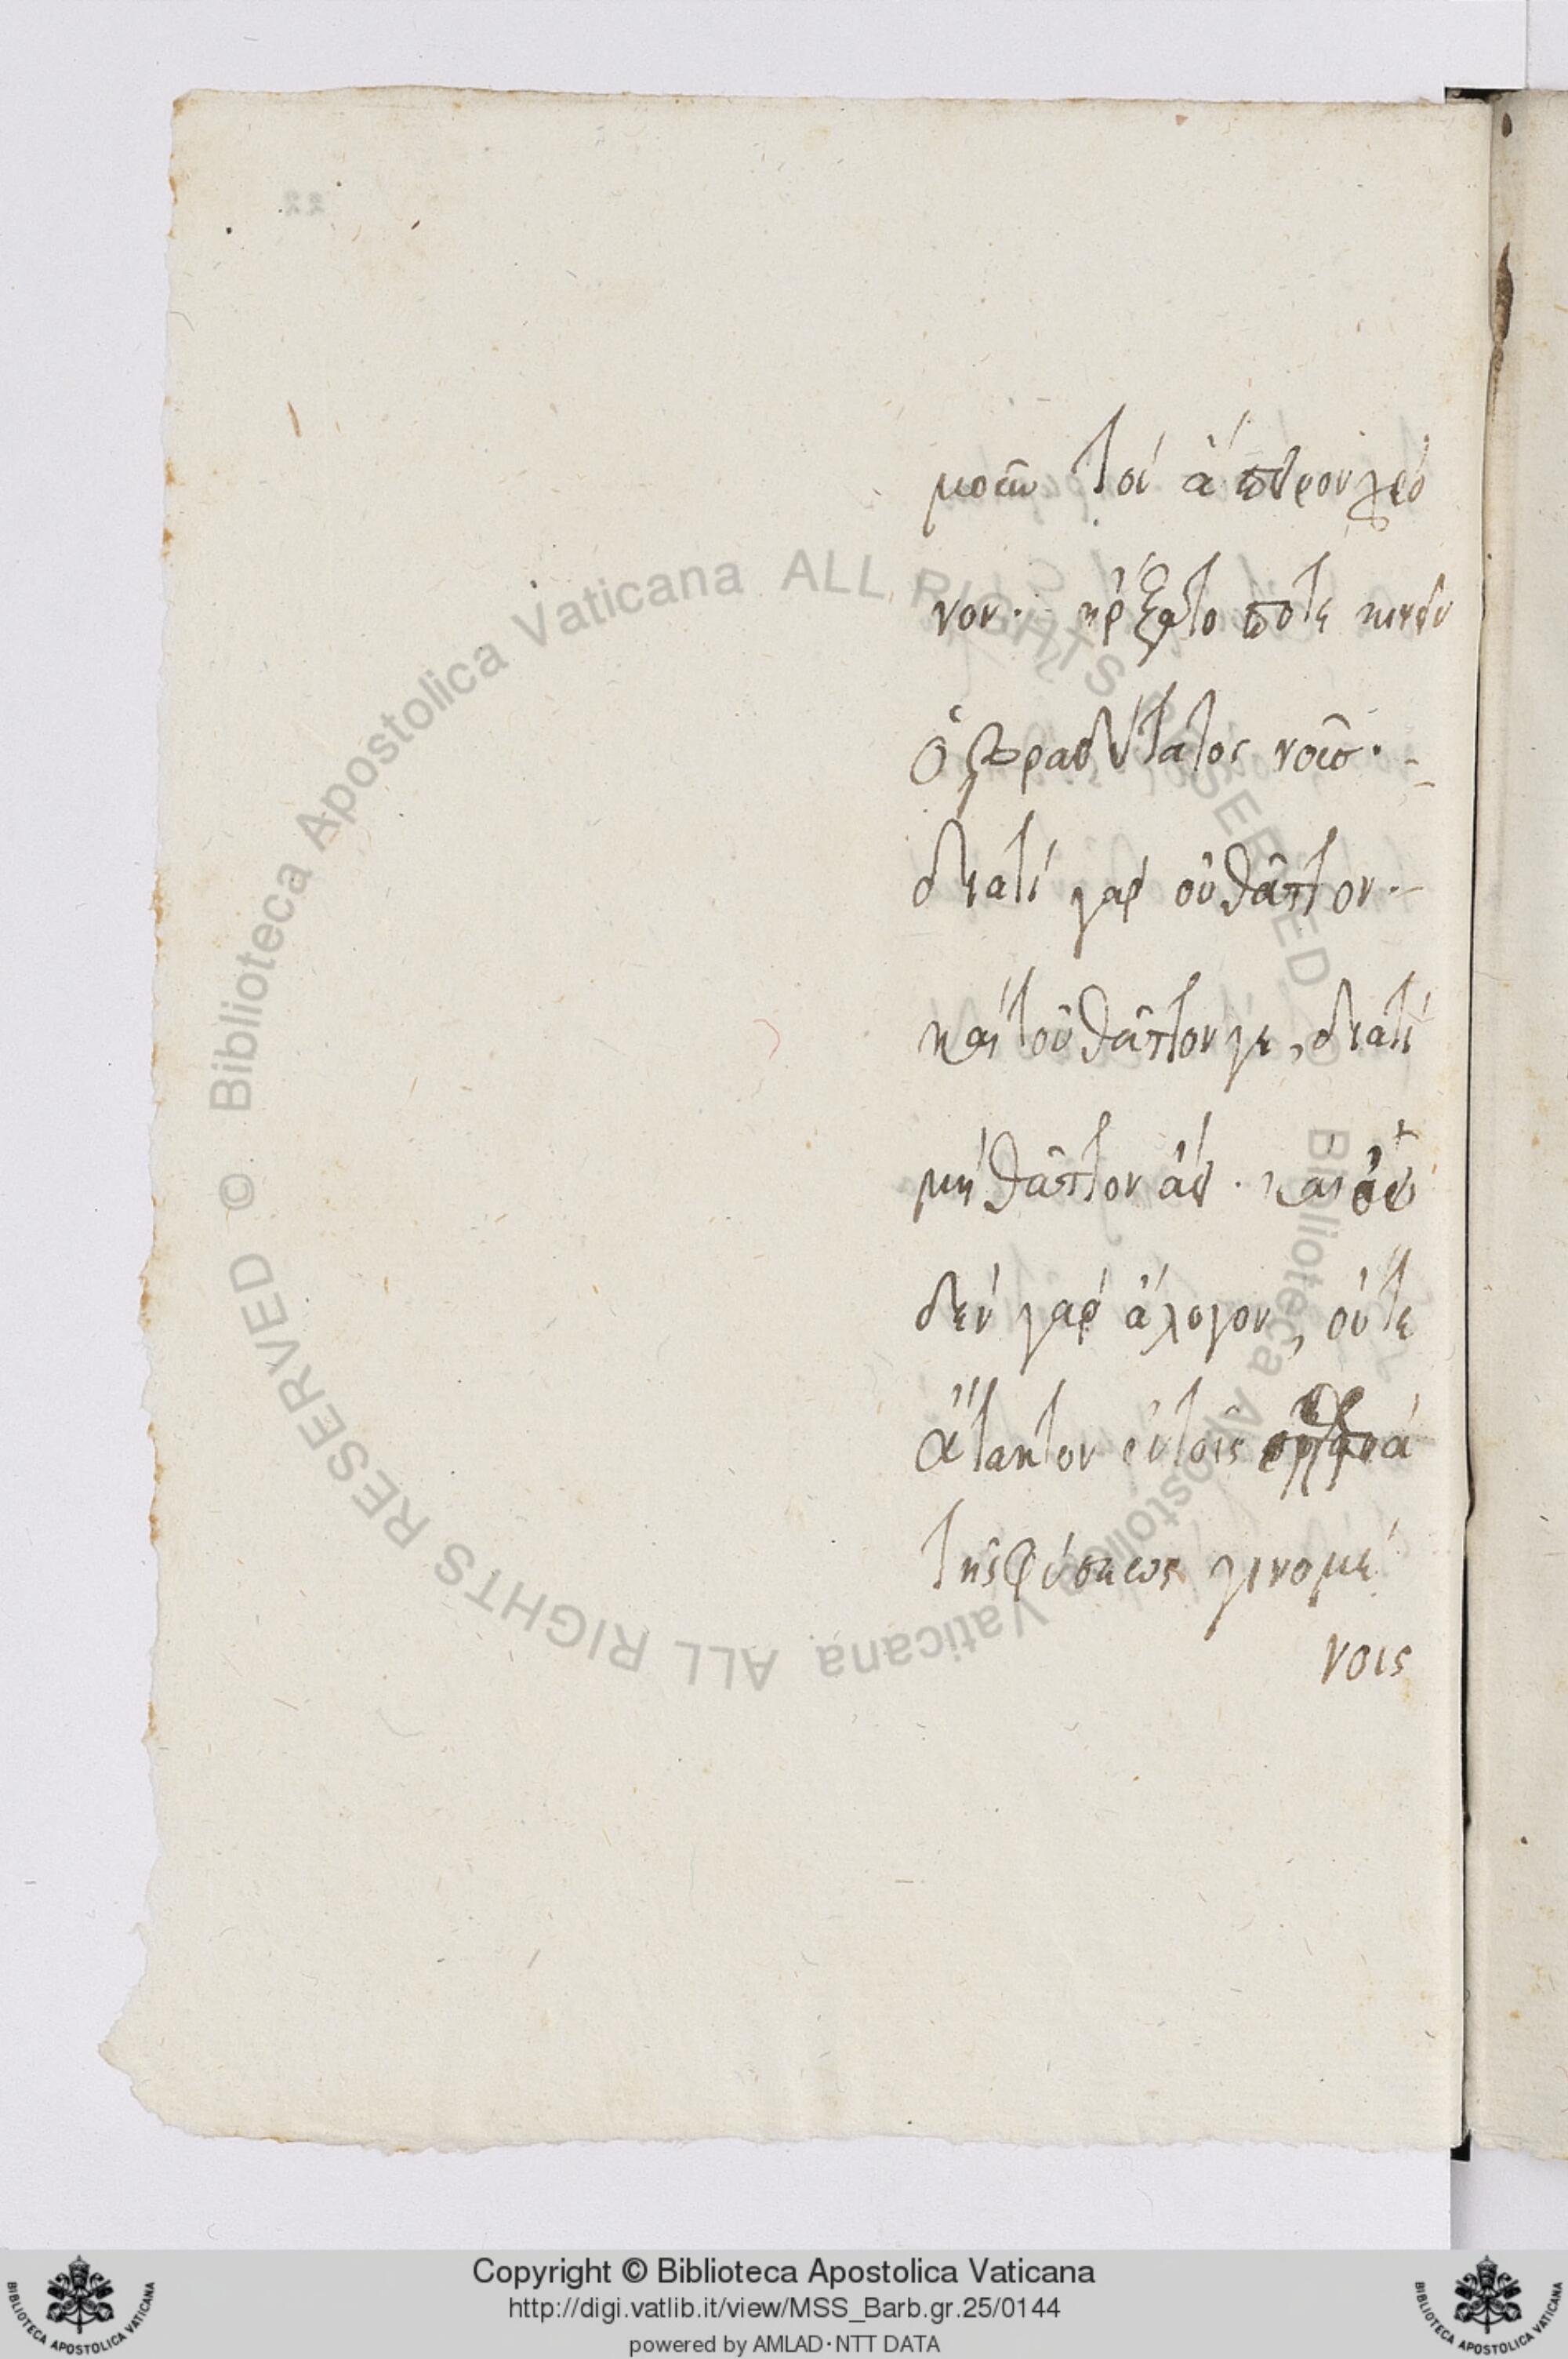 μοῦν τὸν ἄπειρον χρό
νον· ἤρξατό ποτε κινεῖν
ὁ βραδύτατος νοῦς·
διατί γὰρ οὐ θᾶττον·
καίτοι θᾶττόν γε, διατί
μὴ θᾶττον ἄν· καὶ οὐ
δὲν γὰρ ἄλογον, οὔτε
ἄτακτον ἐν τοῖς παρὰ
τῆς φύσεως γινομέ
νοις
22
Biblioteca Apostolica Vaticana ALL RIGHTS RESERVED ©
Biblioteca Apostolica Vaticana ALL RIGHTS RESERVED ©
Copyright © Biblioteca Apostolica Vaticana
http://digi.vatlib.it/view/MSS_Barb.gr.25/0144
powered by AMLAD·NTT DATA
BIBLIOTECA APOSTOLICA VATICANA
BIBLIOTECA APOSTOLICA VATICANA